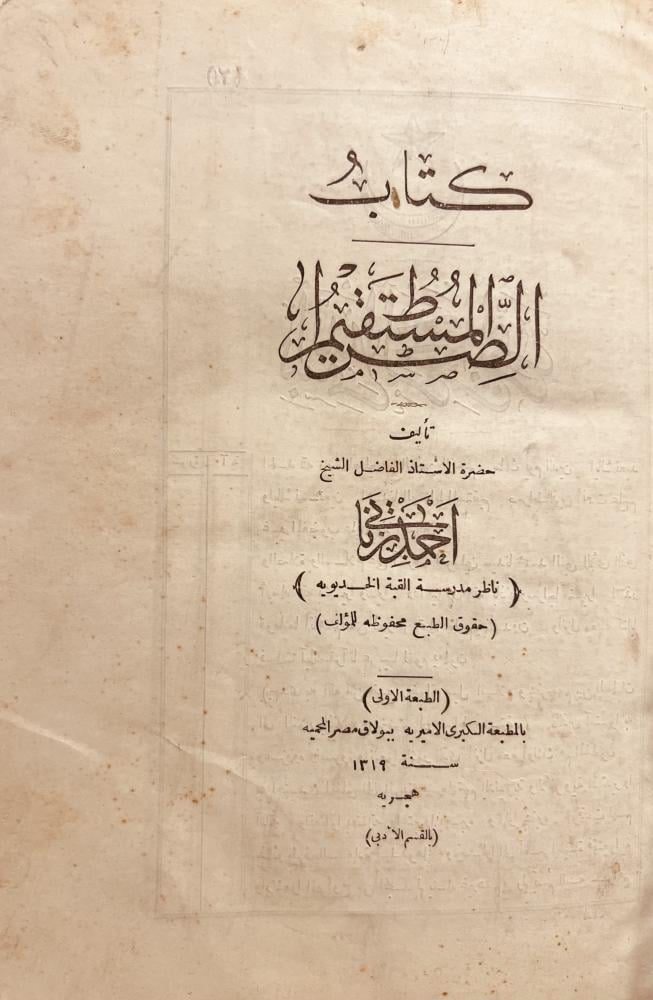 كتاب
الصراط المستقيم
تأليف
حضرة الاستاذ الفاضل الشيخ
احمد زناتي
(ناظر مدرسة القبة الخديويه)
(حقوق الطبع محفوظه للمؤلف)
(الطبعة الاولى)
بالمطبعة الكبرى الاميريه ببولاق مصر المحميه
سنة ١٣١٩
هجريه
(بالقسم الأدبى)